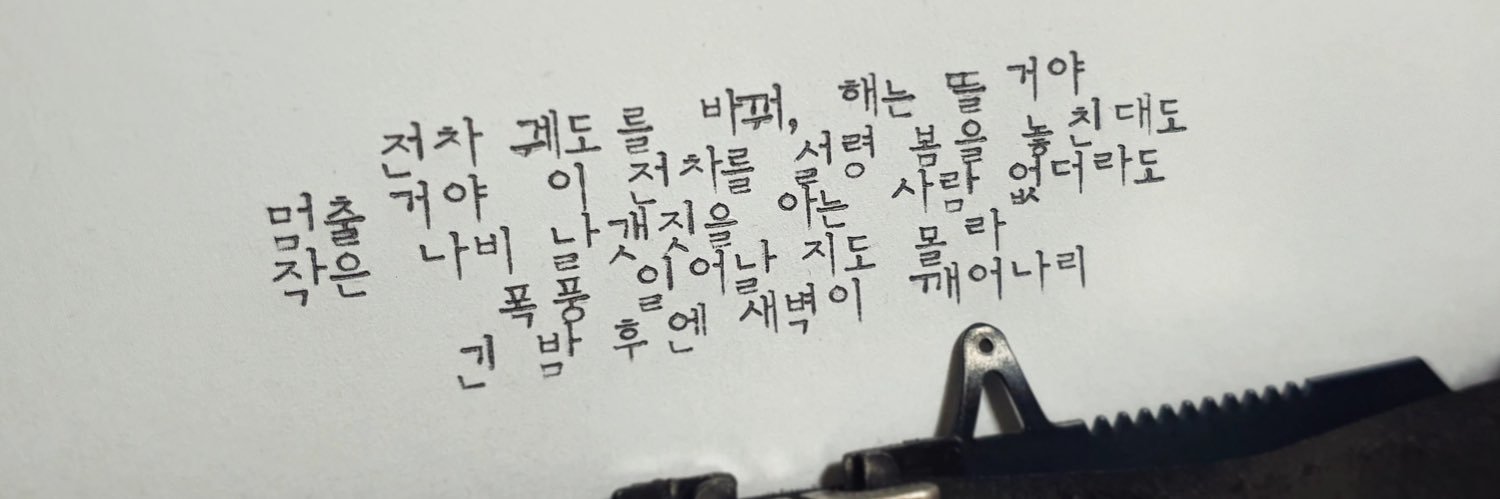 전차 궤도를 바꿔, 해는 뜰 거야
멈출 거야 이 전차를 설령 봄을 놓친대도
작은 나비 날갯짓을 아는 사람 없더라도
폭풍 일어날 지도 몰라
긴 밤 후엔 새벽이 깨어나리